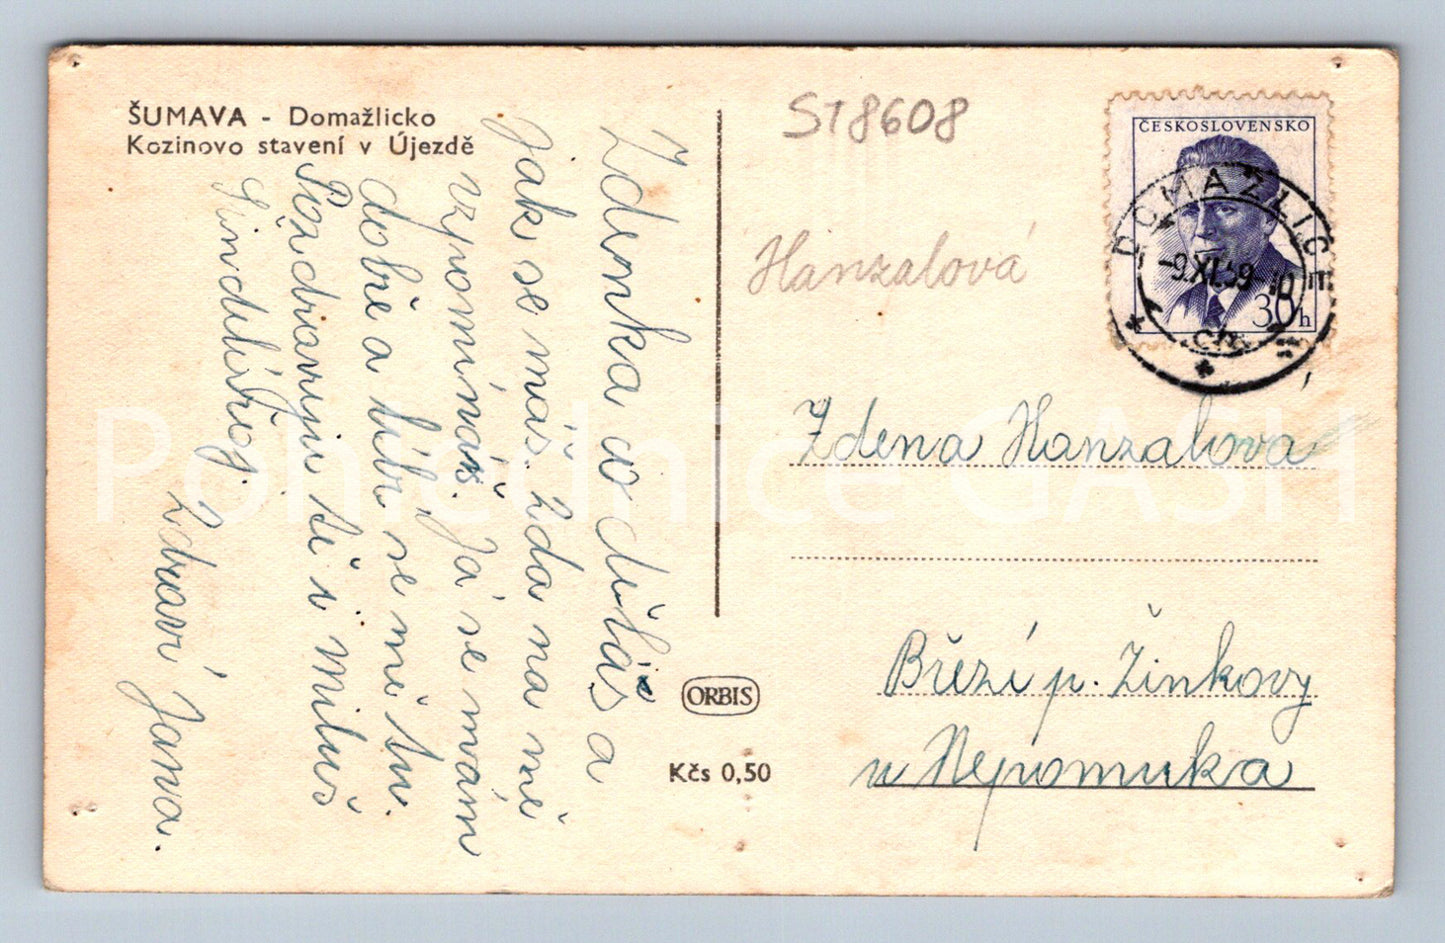 ŠUMAVA - Domažlicko
Kozinovo stavení v Újezdě
Zdenka co děláš a
jak se máš. zda na mě
vzpomínáš. Já se mám
dobře a líbí se mě tu.
Pozdravuji tě i Miluš
Šindelářoj.
Zdraví Jana.
ORBIS
Kčs 0,50
ST8608
Hanzalová
ČESKOSLOVENSKO
30h
DOMAŽLICE
-9.XI.59-10
Zdena Hanzalova
Březí p. Žinkovy
u Nepomuka
Pohlednice GASH